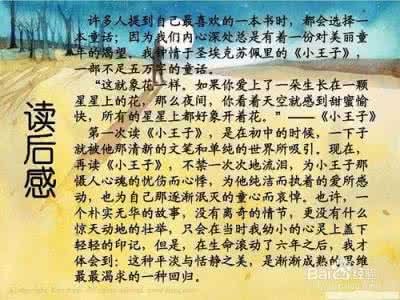 读后感
许多人提到自己最喜欢的一本书时，都会选择一
本童话；因为我们内心深处总是有着一份对美丽童
年的渴望。我钟情于圣埃克苏佩里的《小王子》，
一部不足五万字的童话。
“这就象花一样。如果你爱上了一朵生长在一颗
星星上的花，那么夜间，你看着天空就感到甜蜜愉
快，所有的星星上都好象开着花。”——《小王子》
第一次读《小王子》，是在初中的时候，一下子
就被他那清新的文笔和单纯的世界所吸引。现在，
再读《小王子》，不禁一次次地流泪，为小王子那
慑人心魂的忧伤而心悸，为他纯洁而执着的爱所感
动，也为自己那逐渐泯灭的童心而哀悼。也许，一
个朴实无华的故事，没有离奇的情节，更没有什么
惊天动地的壮举，只会在当时我幼小的心灵上盖下
轻轻的印记，但是，在生命滚动了六年之后，我才
体会到：这种平淡与恬静之美，是渐渐成熟的思维
最最渴求的一种回归。
Baidu经验